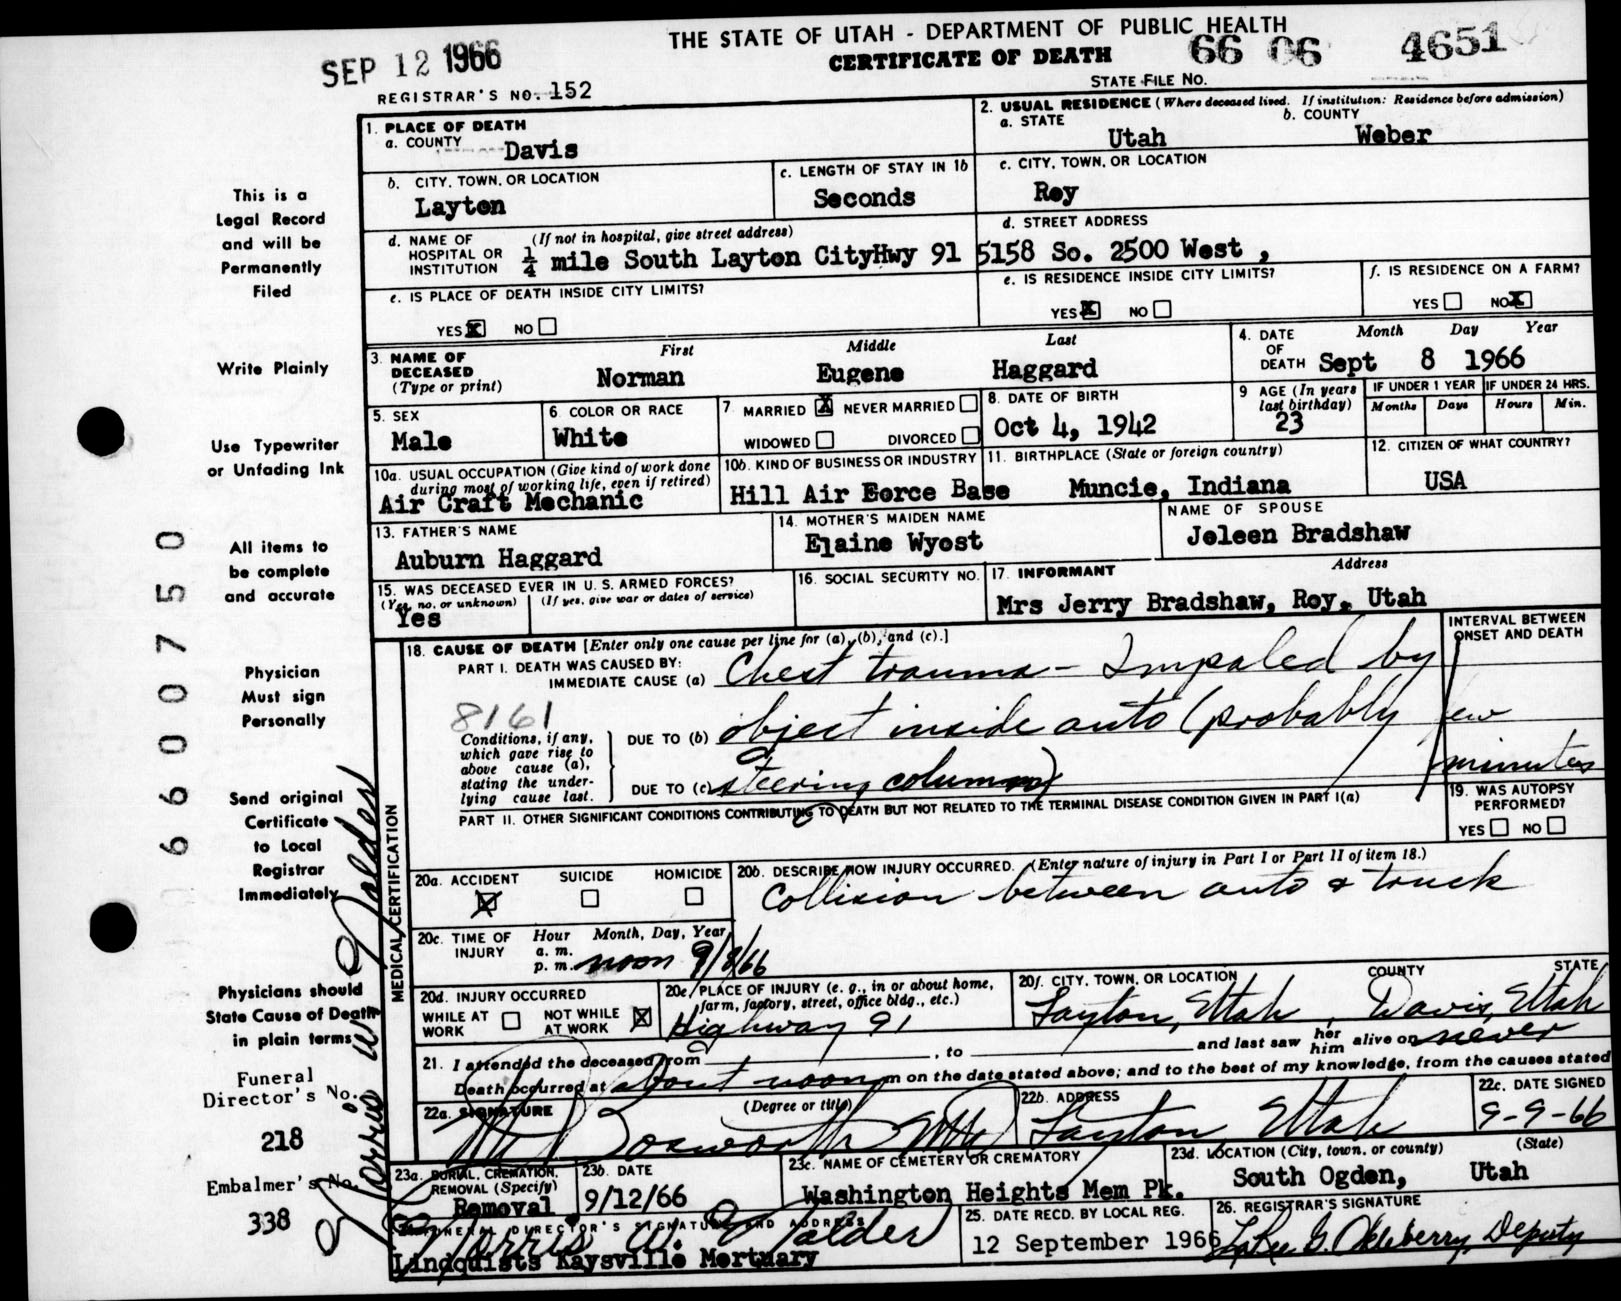 THE STATE OF UTAH - DEPARTMENT OF PUBLIC HEALTH
SEP 12 1966
CERTIFICATE OF DEATH
66 06 4651
STATE FILE NO.
REGISTRAR'S NO. 152
1. PLACE OF DEATH
a. COUNTY Davis
2. USUAL RESIDENCE (Where deceased lived. If institution: Residence before admission)
a. STATE Utah
b. COUNTY Weber
b. CITY, TOWN, OR LOCATION
Layton
c. LENGTH OF STAY IN 1b
Seconds
c. CITY, TOWN, OR LOCATION
Roy
d. NAME OF HOSPITAL OR INSTITUTION (If not in hospital, give street address)
1/4 mile South Layton CityHwy 91
d. STREET ADDRESS
5158 So. 2500 West ,
e. IS PLACE OF DEATH INSIDE CITY LIMITS?
YES X NO
e. IS RESIDENCE INSIDE CITY LIMITS?
YES X NO
f. IS RESIDENCE ON A FARM?
YES NO X
3. NAME OF DECEASED (Type or print)
First Middle Last
Norman Eugene Haggard
4. DATE OF DEATH Month Day Year
Sept 8 1966
5. SEX
Male
6. COLOR OR RACE
White
7. MARRIED X NEVER MARRIED
WIDOWED DIVORCED
8. DATE OF BIRTH
Oct 4, 1942
9 AGE (In years last birthday)
23
IF UNDER 1 YEAR
Months Days
IF UNDER 24 HRS.
Hours Min.
10a. USUAL OCCUPATION (Give kind of work done during most of working life, even if retired)
Air Craft Mechanic
10b. KIND OF BUSINESS OR INDUSTRY
Hill Air Force Base
11. BIRTHPLACE (State or foreign country)
Muncie, Indiana
12. CITIZEN OF WHAT COUNTRY?
USA
13. FATHER'S NAME
Auburn Haggard
14. MOTHER'S MAIDEN NAME
Elaine Wyost
NAME OF SPOUSE
Joleen Bradshaw
15. WAS DECEASED EVER IN U. S. ARMED FORCES?
(Yes, no, or unknown) (If yes, give war or dates of service)
Yes
16. SOCIAL SECURITY NO.
17. INFORMANT Address
Mrs Jerry Bradshaw, Roy, Utah
MEDICAL CERTIFICATION
18. CAUSE OF DEATH [Enter only one cause per line for (a), (b), and (c).]
INTERVAL BETWEEN ONSET AND DEATH
PART I. DEATH WAS CAUSED BY:
IMMEDIATE CAUSE (a) Chest trauma - Impaled by
8161
Conditions, if any, which gave rise to above cause (a), stating the underlying cause last.
DUE TO (b) object inside auto (probably
few minutes
DUE TO (c) steering column)
PART II. OTHER SIGNIFICANT CONDITIONS CONTRIBUTING TO DEATH BUT NOT RELATED TO THE TERMINAL DISEASE CONDITION GIVEN IN PART I(a)
19. WAS AUTOPSY PERFORMED?
YES NO
20a. ACCIDENT X SUICIDE HOMICIDE
20b. DESCRIBE HOW INJURY OCCURRED. (Enter nature of injury in Part I or Part II of item 18.)
Collision between auto & truck
20c. TIME OF INJURY Hour Month, Day, Year
a. m.
p. m. noon 9/8/66
20d. INJURY OCCURRED
WHILE AT WORK NOT WHILE AT WORK X
20e. PLACE OF INJURY (e. g., in or about home, farm, factory, street, office bldg., etc.)
Highway 91
20f. CITY, TOWN, OR LOCATION COUNTY STATE
Layton, Utah, Davis, Utah
21. I attended the deceased from , to and last saw her him alive on never
Death occurred at about noon m on the date stated above; and to the best of my knowledge, from the causes stated
22a. SIGNATURE (Degree or title)
Bosworth MD
22b. ADDRESS
Layton, Utah
22c. DATE SIGNED
9-9-66
23a. BURIAL, CREMATION, REMOVAL (Specify)
Removal
23b. DATE
9/12/66
23c. NAME OF CEMETERY OR CREMATORY
Washington Heights Mem Pk.
23d. LOCATION (City, town, or county) (State)
South Ogden, Utah
FUNERAL DIRECTOR'S SIGNATURE AND ADDRESS
Norris W. Nalder
Lindquists Kaysville Mortuary
25. DATE RECD. BY LOCAL REG.
12 September 1966
26. REGISTRAR'S SIGNATURE
Deputy
This is a
Legal Record
and will be
Permanently
Filed
Write Plainly
Use Typewriter
or Unfading Ink
All items to
be complete
and accurate
Physician
Must sign
Personally
Send original
Certificate
to Local
Registrar
Immediately
Physicians should
State Cause of Death
in plain terms
Funeral
Director's No.
218
Embalmer's No.
338
Norris W Nalder
066000750